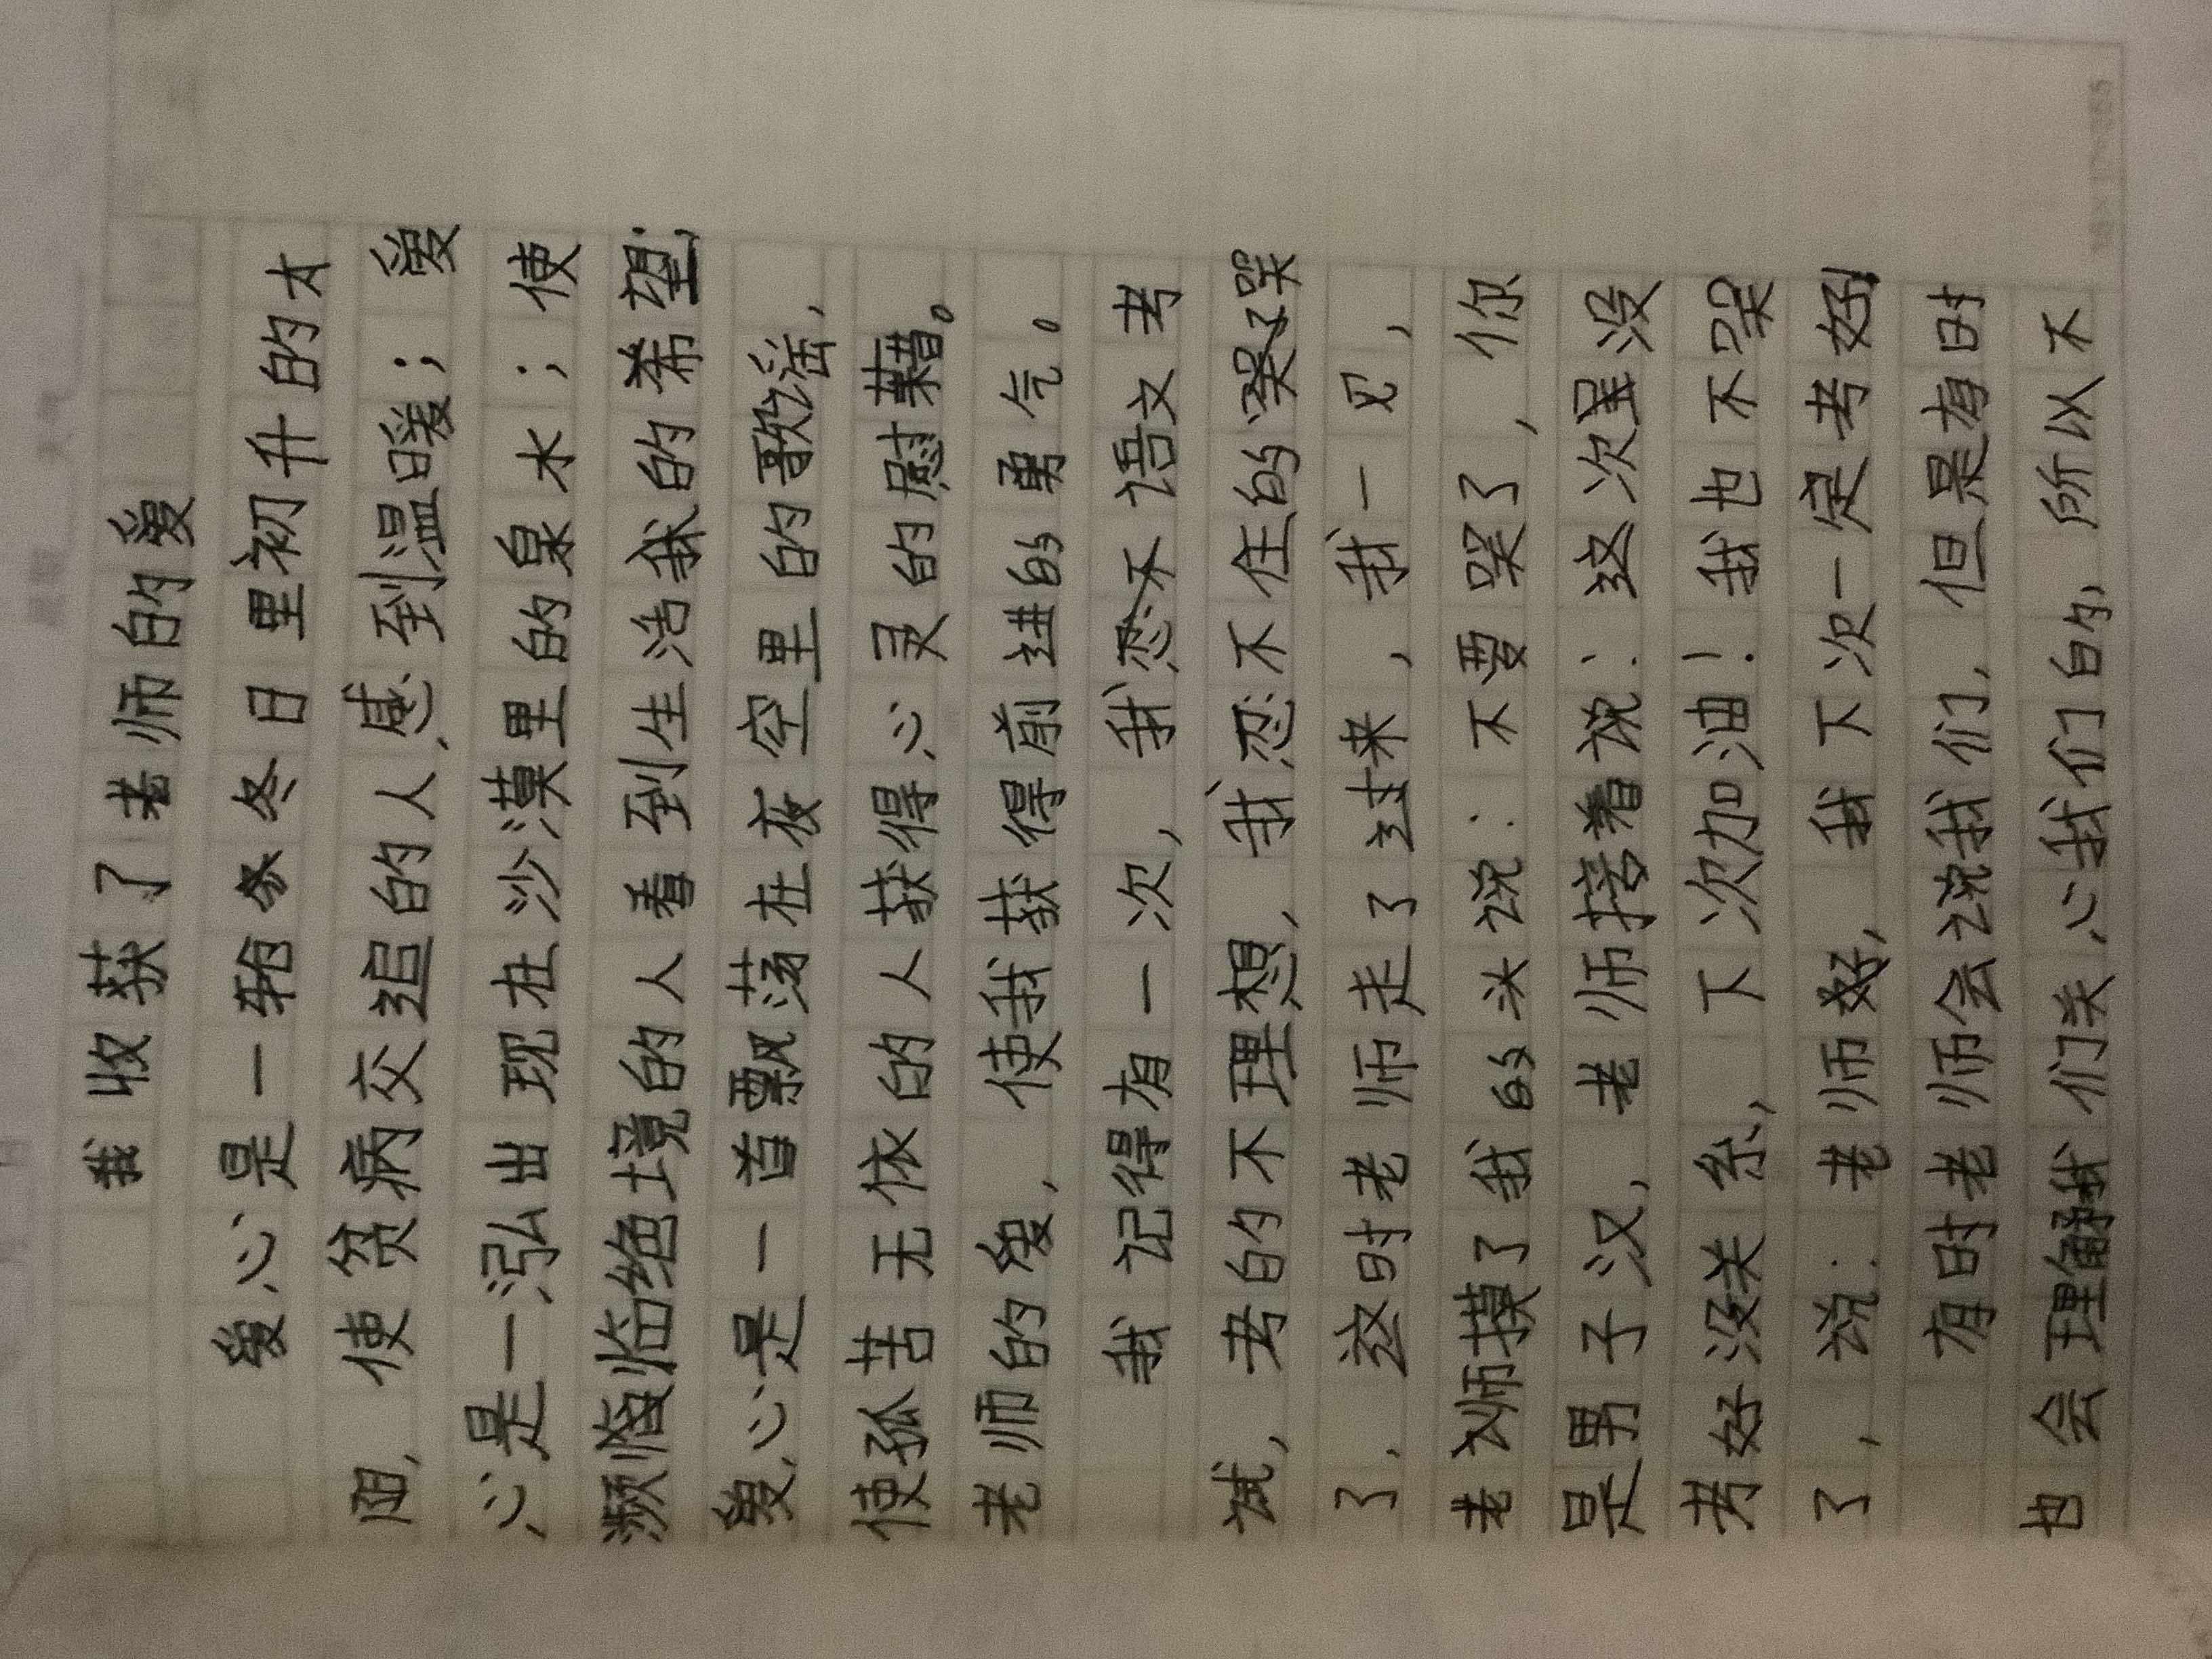 我收获了老师的爱
爱心是一轮冬日里初升的太
阳，使贫病交迫的人感到温暖；爱
心是一泓出现在沙漠里的泉水；使
濒临绝境的人看到生活我的希望；
爱心是一首飘荡在夜空里的歌谣，
使孤苦无依的人获得心灵的慰藉。
老师的爱，使我获得前进的勇气。
我记得有一次，我忍不语文考
试，考的不理想，我忍不住的哭了哭
了，这时老师走了过来，我一见，
老师摸了我的头说：不要哭了，你
是男子汉，老师接着说：这次虽没
考好没关系，下次加油！我也不哭
了，说：老师好，我下次一定考好，
有时老师会说我们，但是有时
也会理解我们关心我们的，所以不